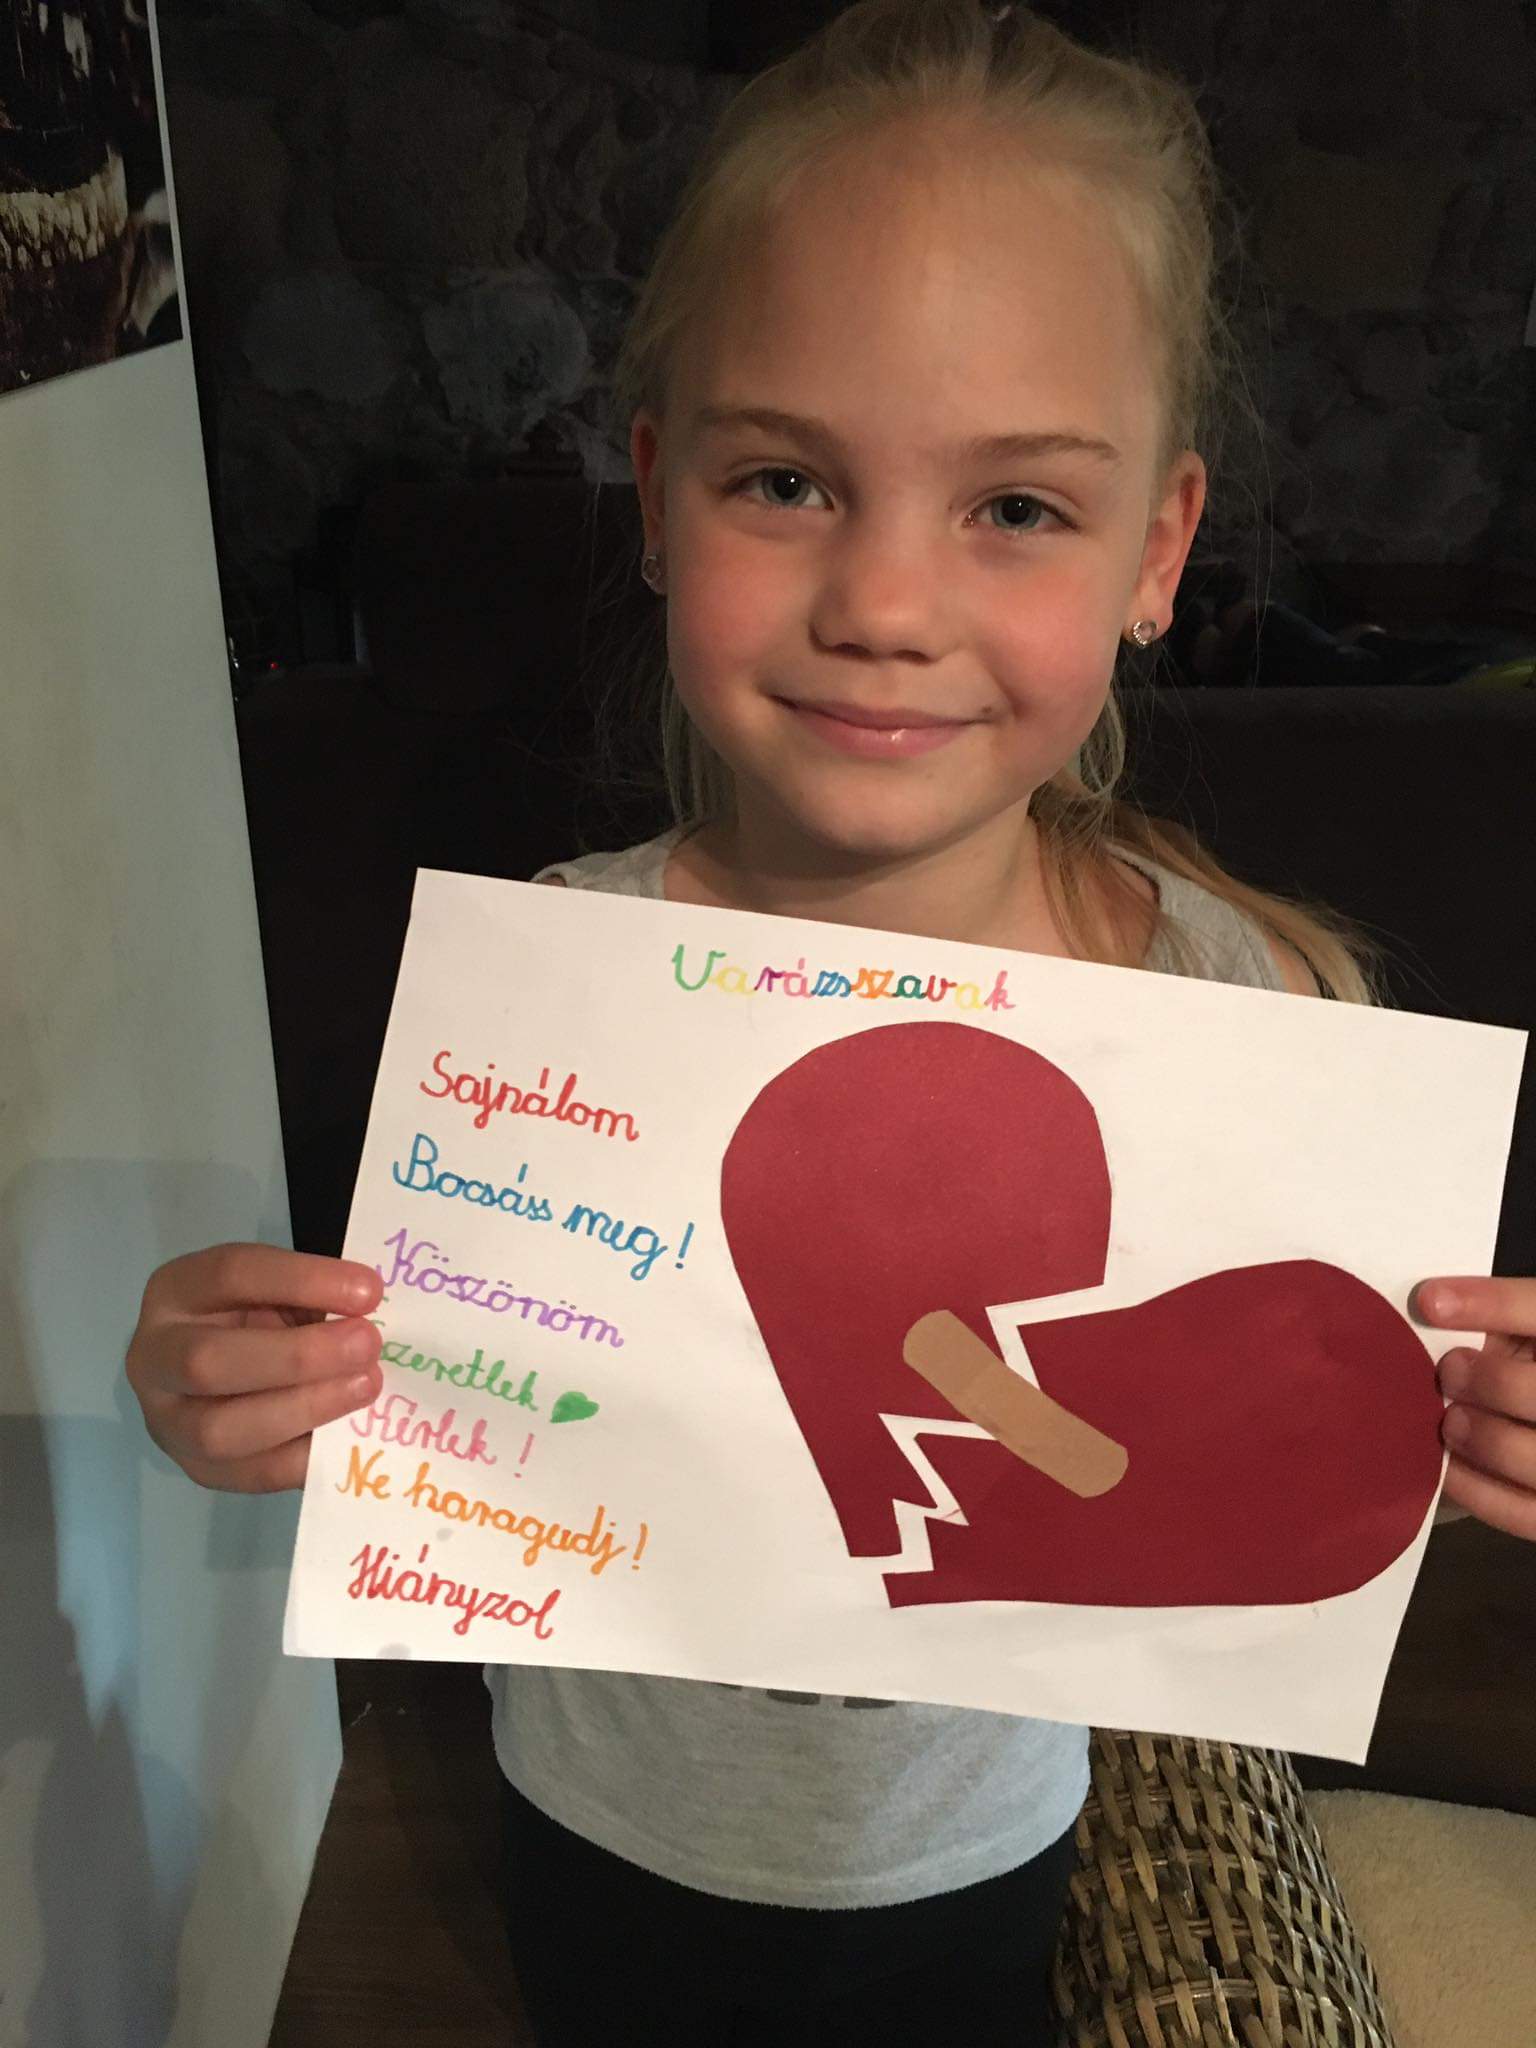 Varázsszavak
Sajnálom
Bocsáss meg!
Köszönöm
Szeretlek
Kérlek!
Ne haragudj!
Hiányzol